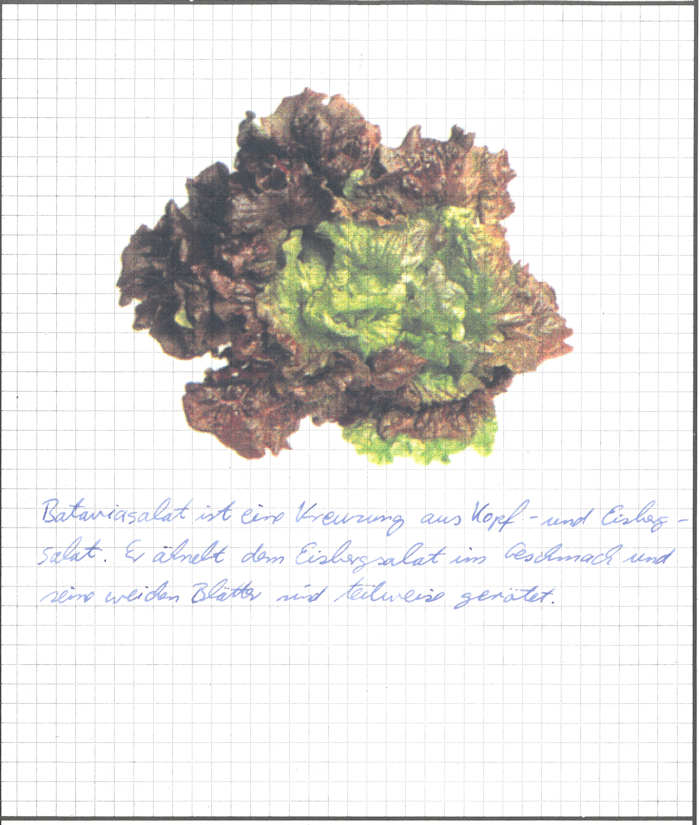 Bataviasalat ist eine Kreuzung aus Kopf- und Eisberg-
salat. Er ähnelt dem Eisbergsalat im Geschmack und
seine weichen Blätter sind teilweise gerötet.